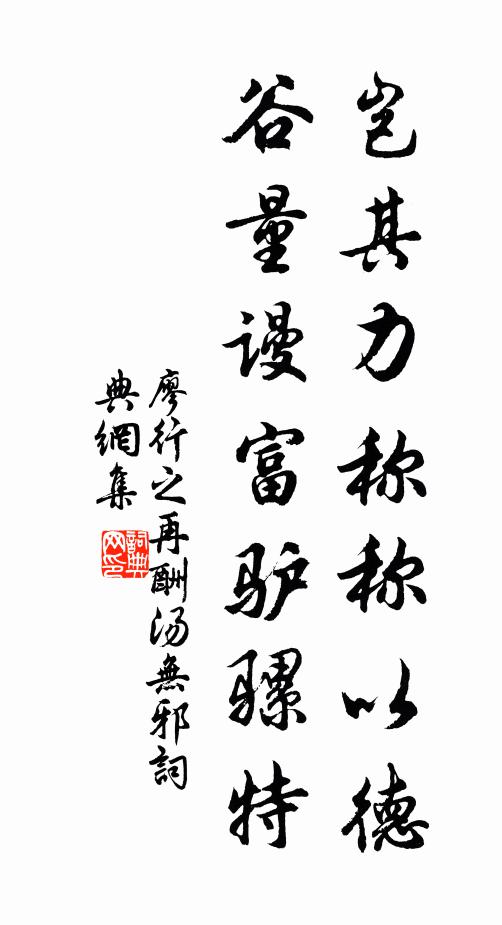 岂其力称称以德
谷量谩富驴骡特
廖行之再酬汤無邪詞
典網集
詞典网印